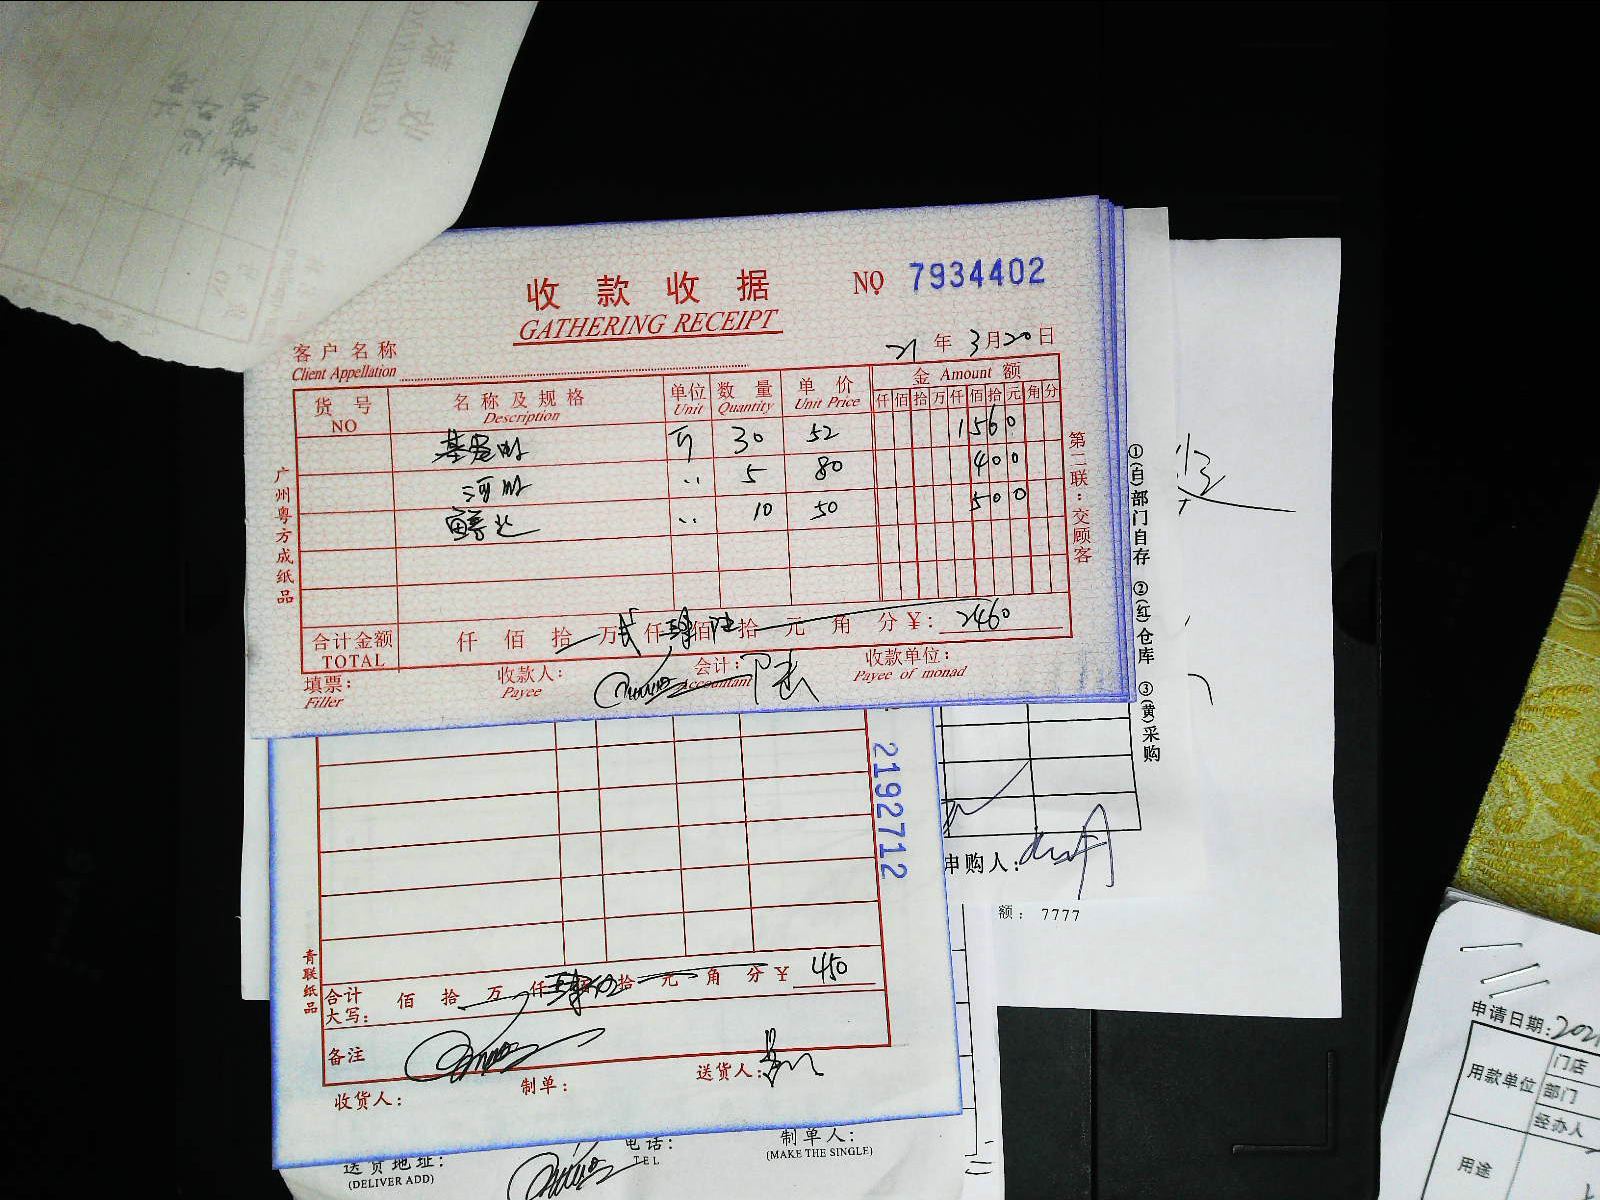 收款收据
GATHERING RECEIPT
NO 7934402
客户名称
Client Appellation
21年3月20日
货号
NO
名称及规格
Description
单位
Unit
数量
Quantity
单价
Unit Price
金 Amount 额
仟佰拾万仟佰拾元角分
30 52 1560
河虾 〃 5 80 400
〃 10 50 500
合计金额
TOTAL
仟佰拾万贰仟肆佰陆拾元角分¥: 2460
填票:
Filler
收款人:
Payee
会计:
Accountant
收款单位:
Payee of monad
广州粤方成纸品
第二联:交顾客
①(白)部门自存 ②(红)仓库 ③(黄)采购
2192712
申购人:
额: 7777
青联纸品
合计
大写:
佰拾万仟肆佰伍拾元角分¥ 450
备注
收货人:
制单:
送货人:
送货地址:
(DELIVER ADD)
电话:
TEL
制单人:
(MAKE THE SINGLE)
申请日期:2021
用款单位
门店
部门
经办人
用途